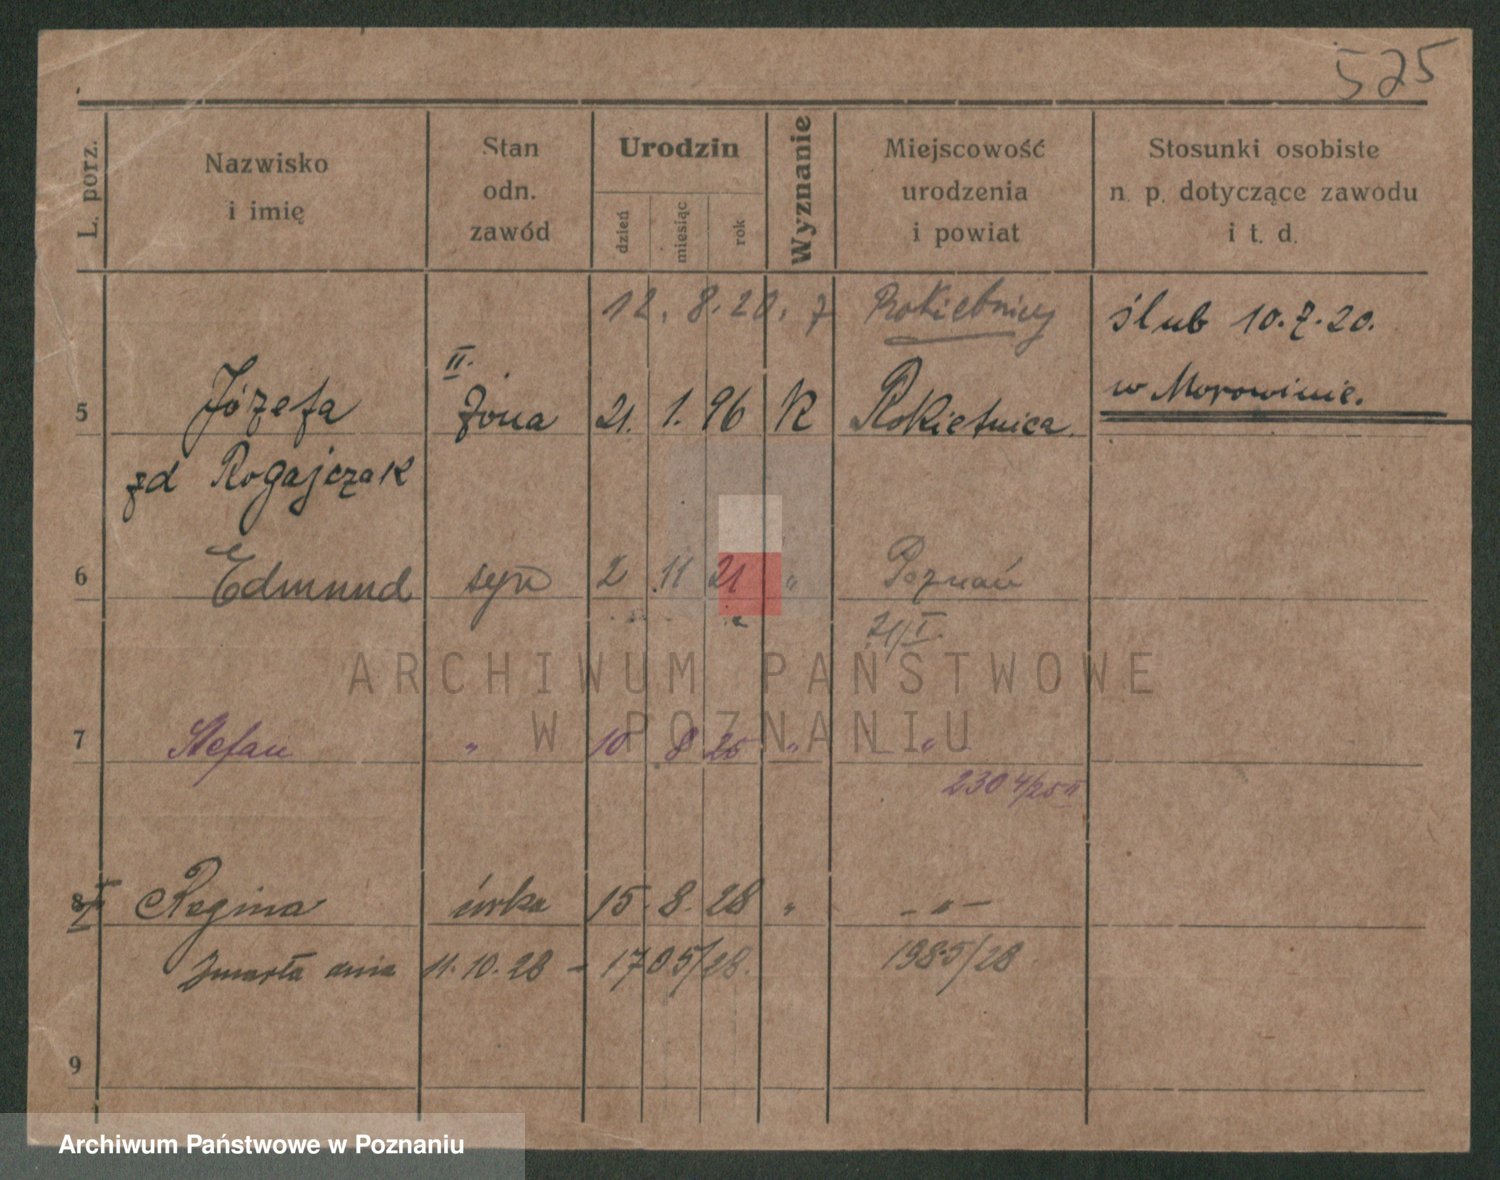 525
L. porz.
Nazwisko
i imię
Stan
odn.
zawód
Urodzin
dzień
miesiąc
rok
Wyznanie
Miejscowość
urodzenia
i powiat
Stosunki osobiste
n. p. dotyczące zawodu
i t. d.
12. 8. 20. z Rokietnicy
ślub 10.7.20.
w Morowinie.
II.
5 Józefa żona 21. 1. 96 K Rokietnica.
zd Rogajczak
6 Edmund syn 2 11 21 " Poznań
21/I
7 Stefan " 10 8 25 " "
2304/25 II
8 Regina córka 15. 8. 28 " - " -
Zmarła dnia 11. 10. 28 - 1705/28. 1985/28
9
ARCHIWUM PAŃSTWOWE
W POZNANIU
Archiwum Państwowe w Poznaniu